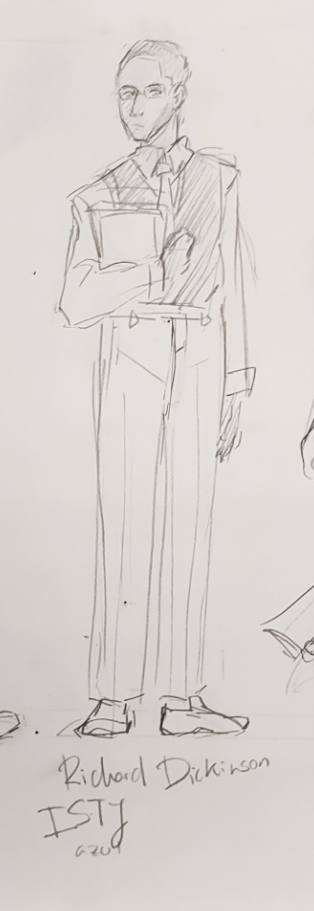 Richard Dickinson
ISTJ
azul